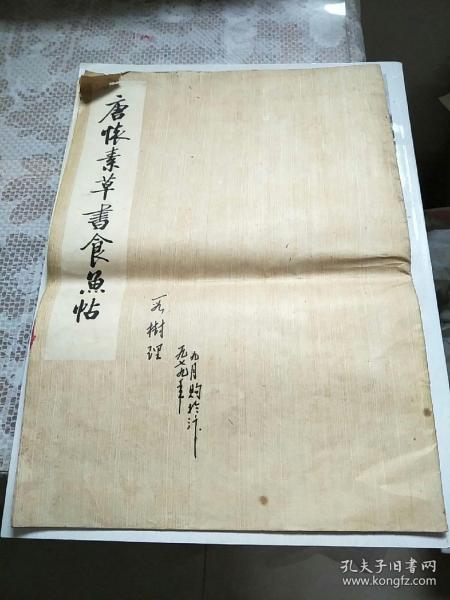 唐懷素草書食魚帖
樹理
一九七九年
九月购於汴
孔夫子旧书网
www.kongfz.com